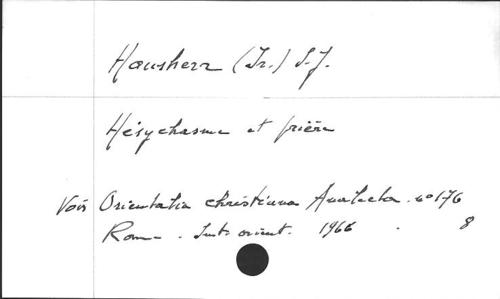 Hausherr (Ir.) S.J.
Hésychasme et prière
Voir Orientalia christiana Analecta. no 176
Rome. Inst. orient. 1966. 8